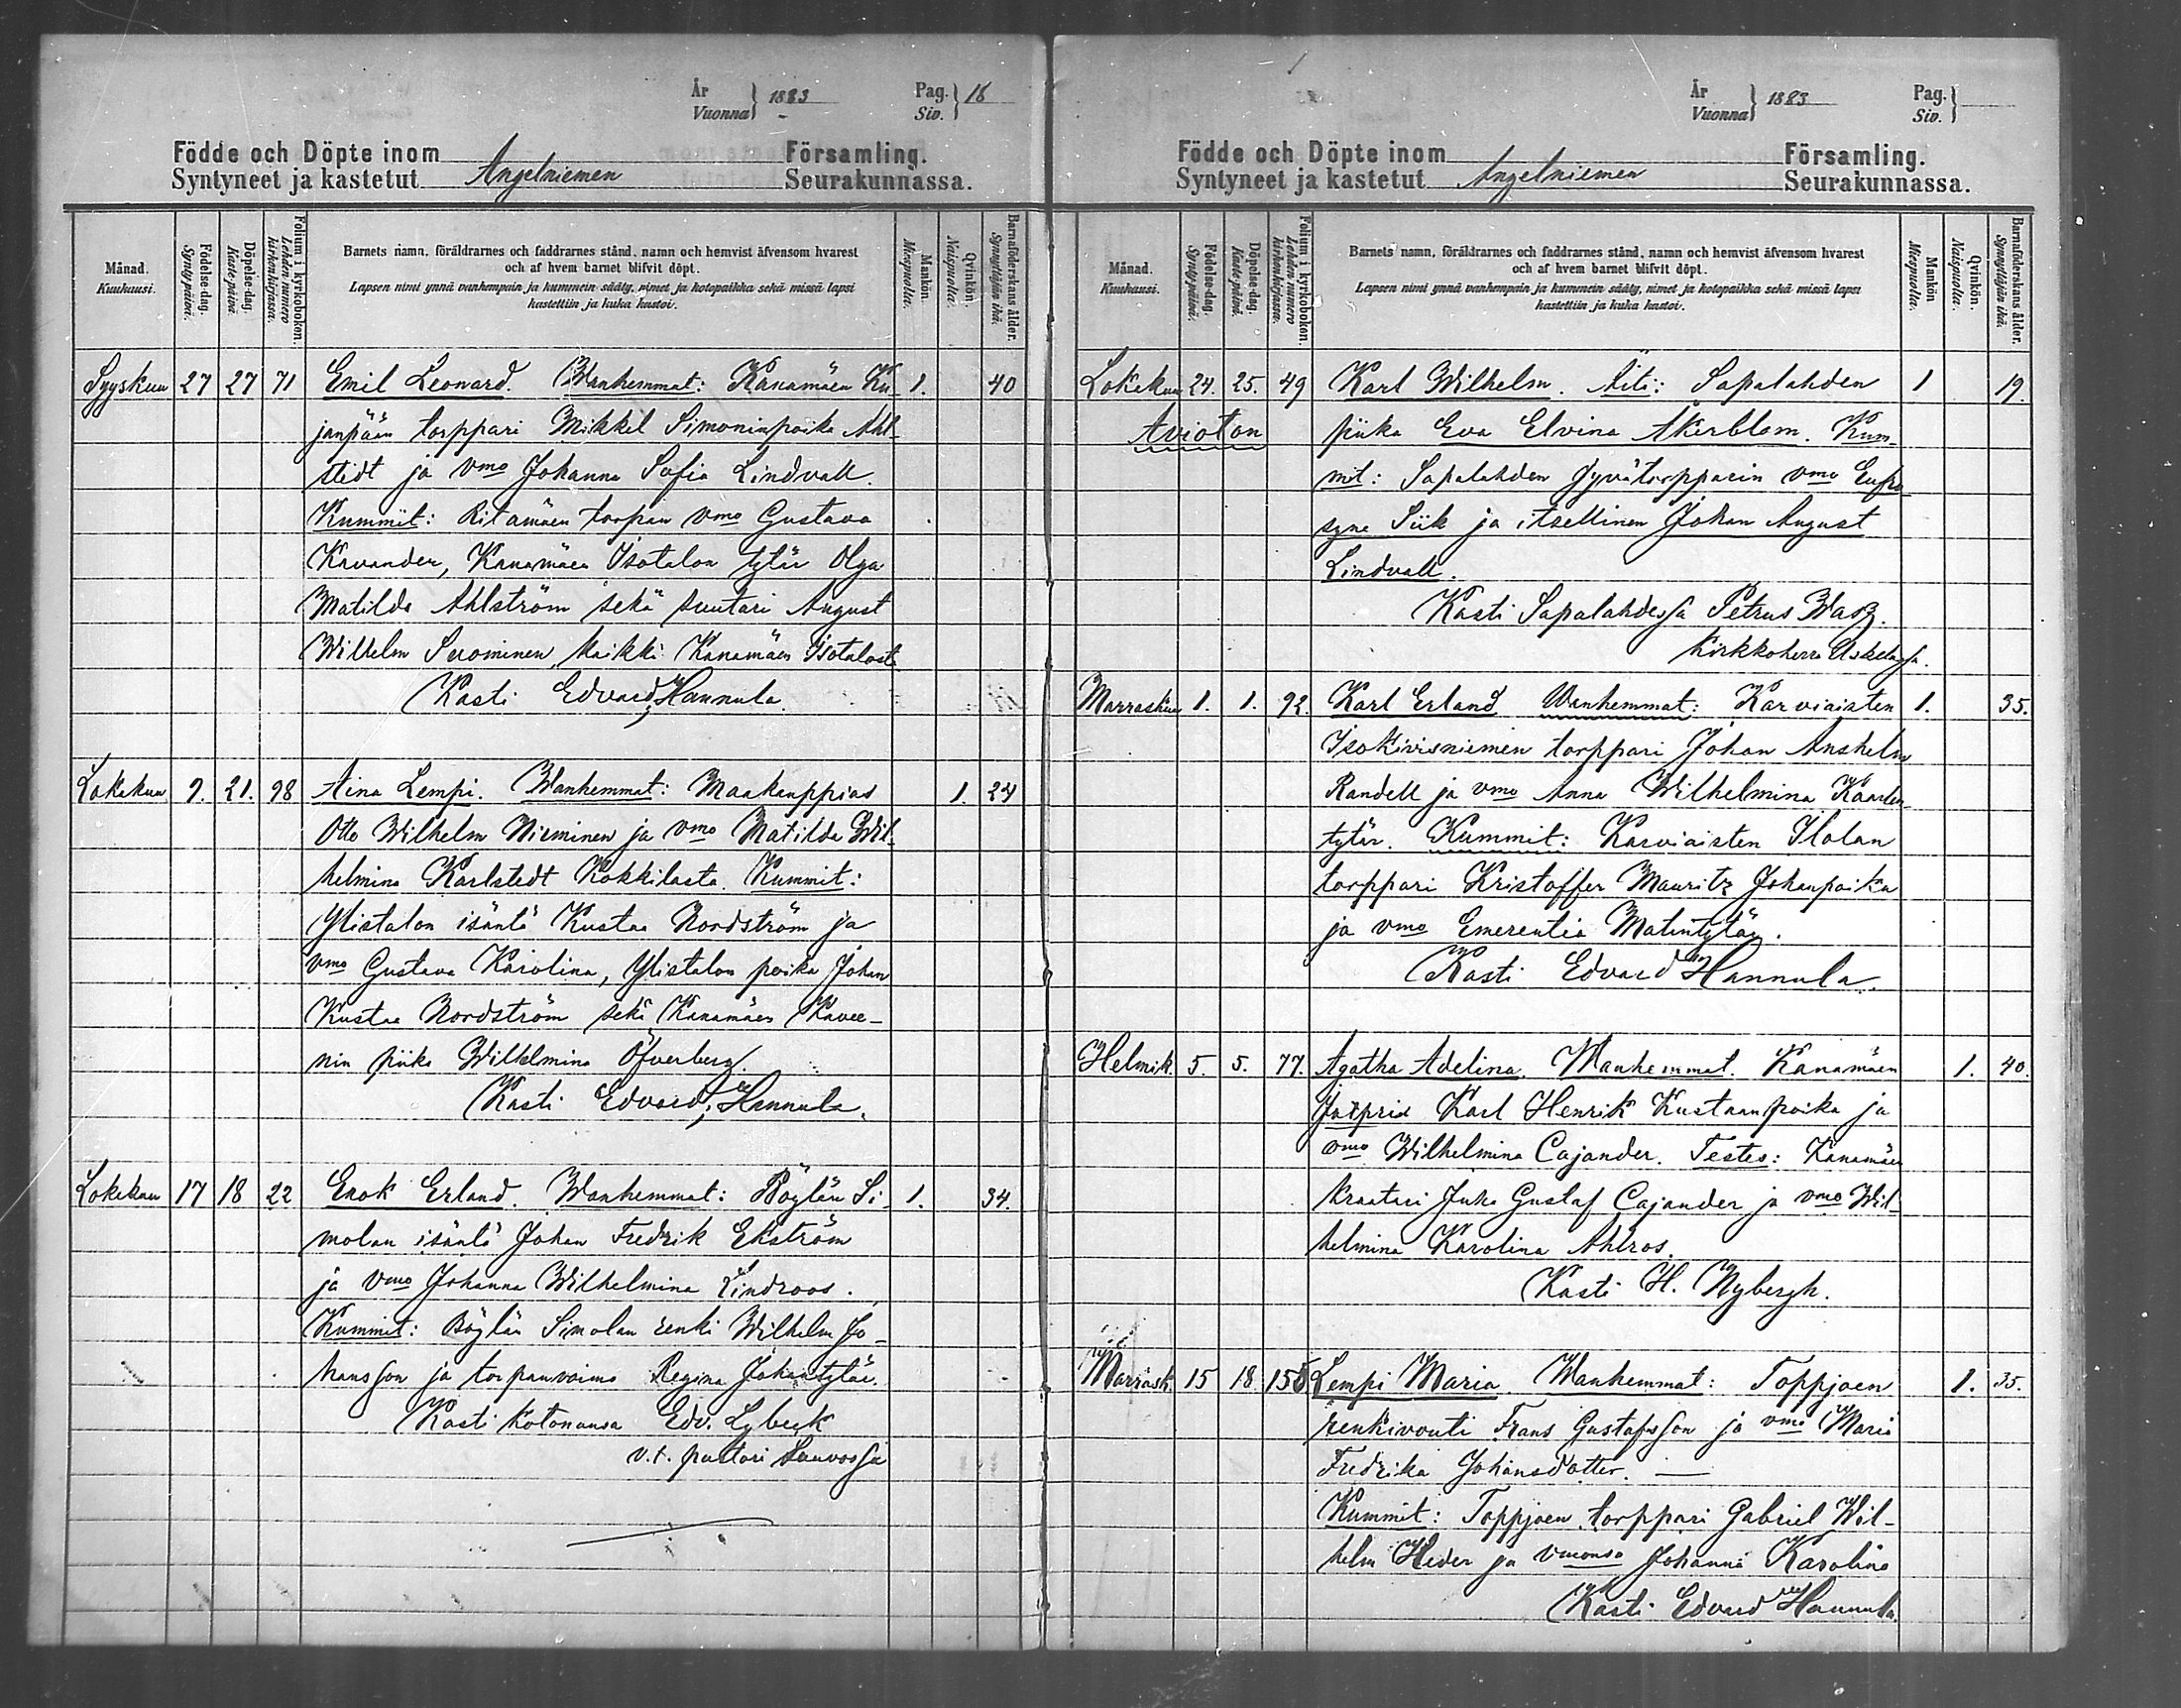 År
Vuonna } 1883
Pag.
Siv. } 16
Födde och Döpte inom
Syntyneet ja kastetut Angelniemen
Församling.
Seurakunnassa.
Månad.
Kuukausi.
Födelse-dag.
Syntypäivä.
Döpelse-dag.
Kastepäivä.
Folium i kyrkobokon.
Lehden numero
kirkonkirjassa.
Barnets namn, föräldrarnes och faddrarnes stånd, namn och hemvist äfvensom hvarest
och af hvem barnet blifvit döpt.
Lapsen nimi ynnä vanhempain ja kummein sääty, nimet ja kotopaikka sekä missä lapsi
kastettiin ja kuka kastoi.
Mankön.
Miespuolta.
Qvinkön.
Naispuolta.
Barnaföderskans ålder.
Synnyttäjän ikä.
Syyskuu 27 27 71 Emil Leonard. Wanhemmat: Kanamäen Ku- 1. 40
janpään torppari Mikkel Simoninpoika Ahl-
stedt ja vmo Johanna Sofia Lindvall.
Kummit: Ritamäen torpan vmo Gustava
Kavander, Kanamäen Isotalon tytär Olga
Matilda Ahlström sekä suutari August
Wilhelm Suominen, kaikki Kanamäen Isotalosta
Kasti Edvard Hannula.
Lokakuu 9. 21. 98 Aina Lempi. Wanhemmat: Maakauppias 1. 24
Otto Wilhelm Nieminen ja vmo Matilda Wil-
helmina Karlstedt Kokkilasta. Kummit:
Ylistalon isäntä Kustaa Nordström ja
vmo Gustava Karolina, Ylistalon poika Johan
Kustaa Nordström sekä Kanamäen
nin piika Wilhelmina Öfverberg.
Kasti Edvard Hannula.
Lokakuu 17 18 22 Enok Erland. Wanhemmat: Pöylän Si- 1. 34.
molan isäntä Johan Fredrik Ekström
ja vmo Johanna Wilhelmina Lindroos.
Kummit: Pöylän Simolan renki Wilhelm Jo-
hansson ja torpanvaimo Regina Johantytär.
Kasti kotonansa Edv. Lybeck
v.t. pastori Sauvossa
År
Vuonna } 1883
Pag.
Siv. }
Födde och Döpte inom
Syntyneet ja kastetut Angelniemen
Församling.
Seurakunnassa.
Månad.
Kuukausi.
Födelse-dag.
Syntypäivä.
Döpelse-dag.
Kaste-päivä.
Folium i kyrkobokon.
Lehden numero
kirkonkirjassa.
Barnets namn, föräldrarnes och faddrarnes stånd, namn och hemvist äfvensom hvarest
och af hvem barnet blifvit döpt.
Lapsen nimi ynnä vanhempain ja kummein sääty, nimet ja kotopaikka sekä missä lapsi
kastettiin ja kuka kastoi.
Mankön
Miespuolta.
Qvinkön.
Naispuolta.
Barnaföderskans ålder.
Synnyttäjän ikä.
Lokakuu 24. 25. 49 Karl Wilhelm. Äiti: Sapalahden 1 19.
Avioton piika Eva Elvina Åkerblom. Kum-
mit: Sapalahden jyvätorpparin vmo Eufro-
syne Siik ja itsellinen Johan August
Lindvall.
Kasti Sapalahdessa Petrus
Kirkkoherra
Marraskuu 1. 1. 92. Karl Erland Wanhemmat: Karviaisten 1. 35.
Isokivisniemen torppari Johan Anshelm
Randell ja vmo Anna Wilhelmina Kaarlen-
tytär. Kummit: Karviaisten Ilolan
torppari Kristoffer Mauritz Johanpoika
ja vmo Emerentia Matintytär.
Kasti Edvard Hannula.
Helmik. 5. 5. 77. Agatha Adelina. Wanhemmat. Kanamäen 1. 40.
Karl Henrik Kustaanpoika ja
vmo Wilhelmina Cajander. Testes: Kanamäen
kraatari Juho Gustaf Cajander ja vmo Wil-
helmina Karolina Ahlros.
Kasti H. Nybergh.
Marrask. 15 18 155 Lempi Maria Wanhemmat: Toppjoen 1. 35.
renkivouti Frans Gustafsson ja vmo Maria
Fredrika Johansdotter. —
Kummit: Toppjoen torppari Gabriel Wil-
helm Heder ja vmonsa Johanna Karolina
Kasti Edvard Hannula.